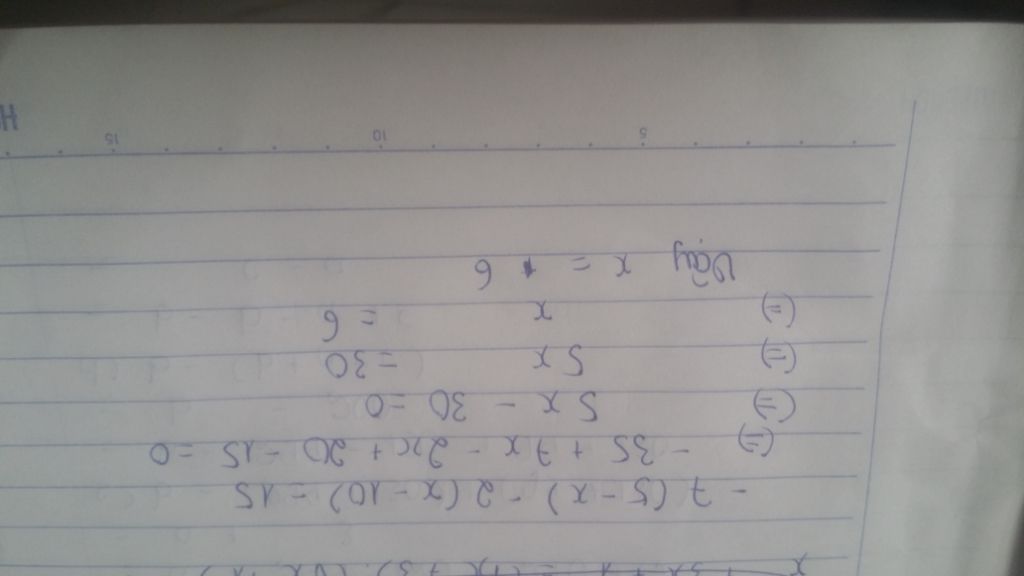 - 7 (5 - x) - 2 (x - 10) = 15
(=) - 35 + 7x - 2x + 20 - 15 = 0
(=) 5x - 30 = 0
(=) 5x = 30
(=) x = 6
Vậy x = 6
5 10 15
H